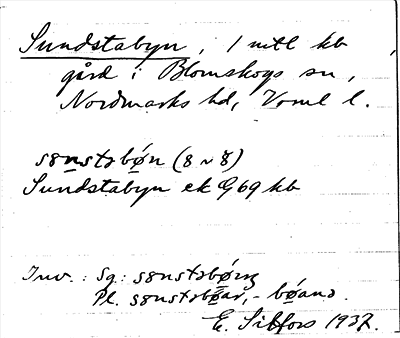 Sundstabyn, 1 mtl kb,
gård i Blomskogs sn,
Nordmarks hd, Vrml l.
sɵnstəbøn (ɵ ~ ɵ̆)
Sundstabyn ek G69 kb
Inv.: Sg.: sɵnstəbøriŋ
Pl. sɵnstəbøar, -bøanə.
E. Sillfors 1937.